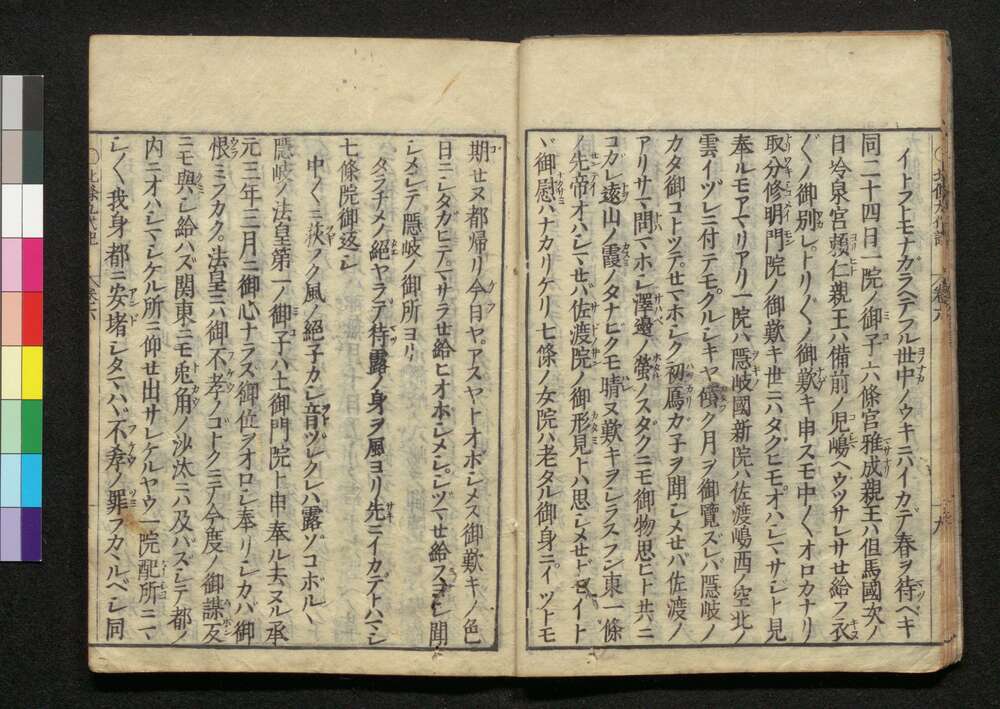 イトフトモナガラヘテフル世中ノウキニハイカデ春ヲ待ベキ
同二十四日一院ノ御子六條宮雅成親王ハ但馬國次ノ
日冷泉宮頼仁親王ハ備前ノ児嶋ヘウツサレサせ給フ衣
〱ノ御別レトリ〱ノ御歎キ申スモ中〱オロカナリ
取分修明門院ノ御歎キ世ニハタグヒモオハシマサジト見
奉ルモアマリアリ一院ハ隠岐國新院ハ佐渡嶋西ノ空北ノ
雲イヅレニ付テモクルシキヤ傾ク月ヲ御覧ズレバ隠岐ノ
カタ御コトツテせマホシク初鳫ガ子ヲ聞シメせバ佐渡ノ
アリサマ問マホシ澤邊ノ螢ノスダクニモ御物思ヒト共ニ
コガレ遠山ノ霞ノタナビクモ晴ヌ歎キヲシラスラン東一條
ノ先帝オハシマせバ佐渡院ノ御形見トハ思シメせドセイト
ヾ御慰ハナカリケリ七條ノ女院ハ老タル御身ニイツトモ
期せヌ都帰リ今日ヤアスヤトオボシメス御歎キノ色
日ニシタガヒテマサラせ給ヒオボシメシツヾせ給フヨシ聞
シメシテ隠岐ノ御所ヨリ
タラチメノ絶ヤラデ待露ノ身ヲ風ヨリ先ニイカデトハマシ
七條院御返シ
中〱ニ荻フク風ノ絶子カシ音ヅレクレバ露ゾコボルヽ
隠岐ノ法皇第一ノ御子ハ土御門院ト申奉ル去ヌル承
元三年三月ニ御心ナラズ御位ヲオロシ奉リシカバ御
恨ミフカク法皇ニハ御不孝ノゴトクニテ今度ノ御謀反
ニモ與シ給ハズ関東ニモ兎角ノ沙汰ニハ及バズシテ都ノ
内ニオハシマシケル所ニ仰せ出サレケルヤウ一院配所ニマ
シ〱我身都ニ安堵シタマハバ不孝ノ罪フカヽルベシ同